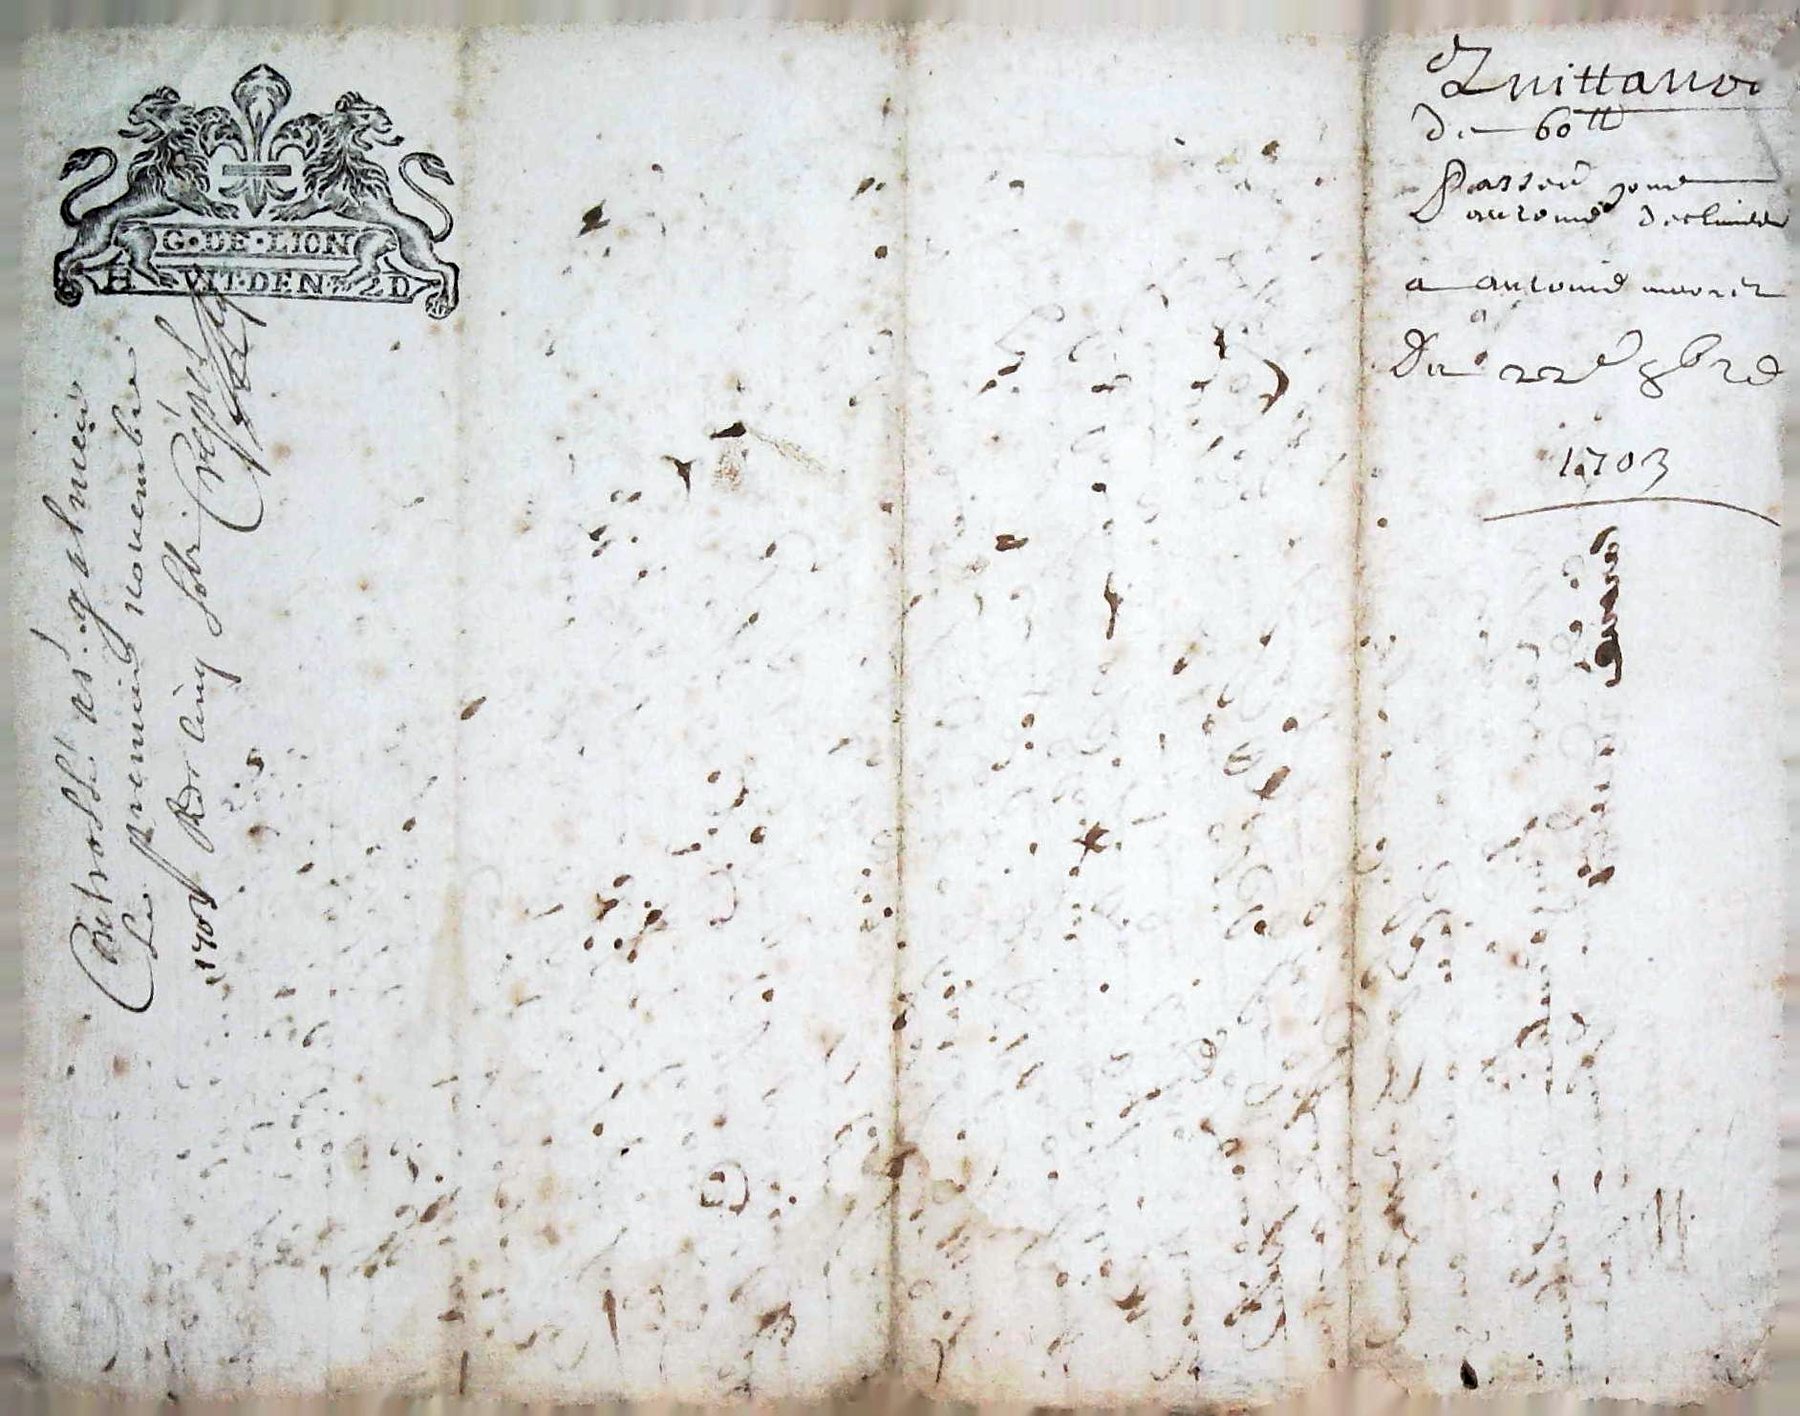 G·DE·LION
HVIT·DEN 2D
Controllé as. galmier
le premier novembre
1703 Rec cinq solz Crespet
Quittance
de 60tt
Passée par
antoine
a antoine
Du 22e 8bre
1703